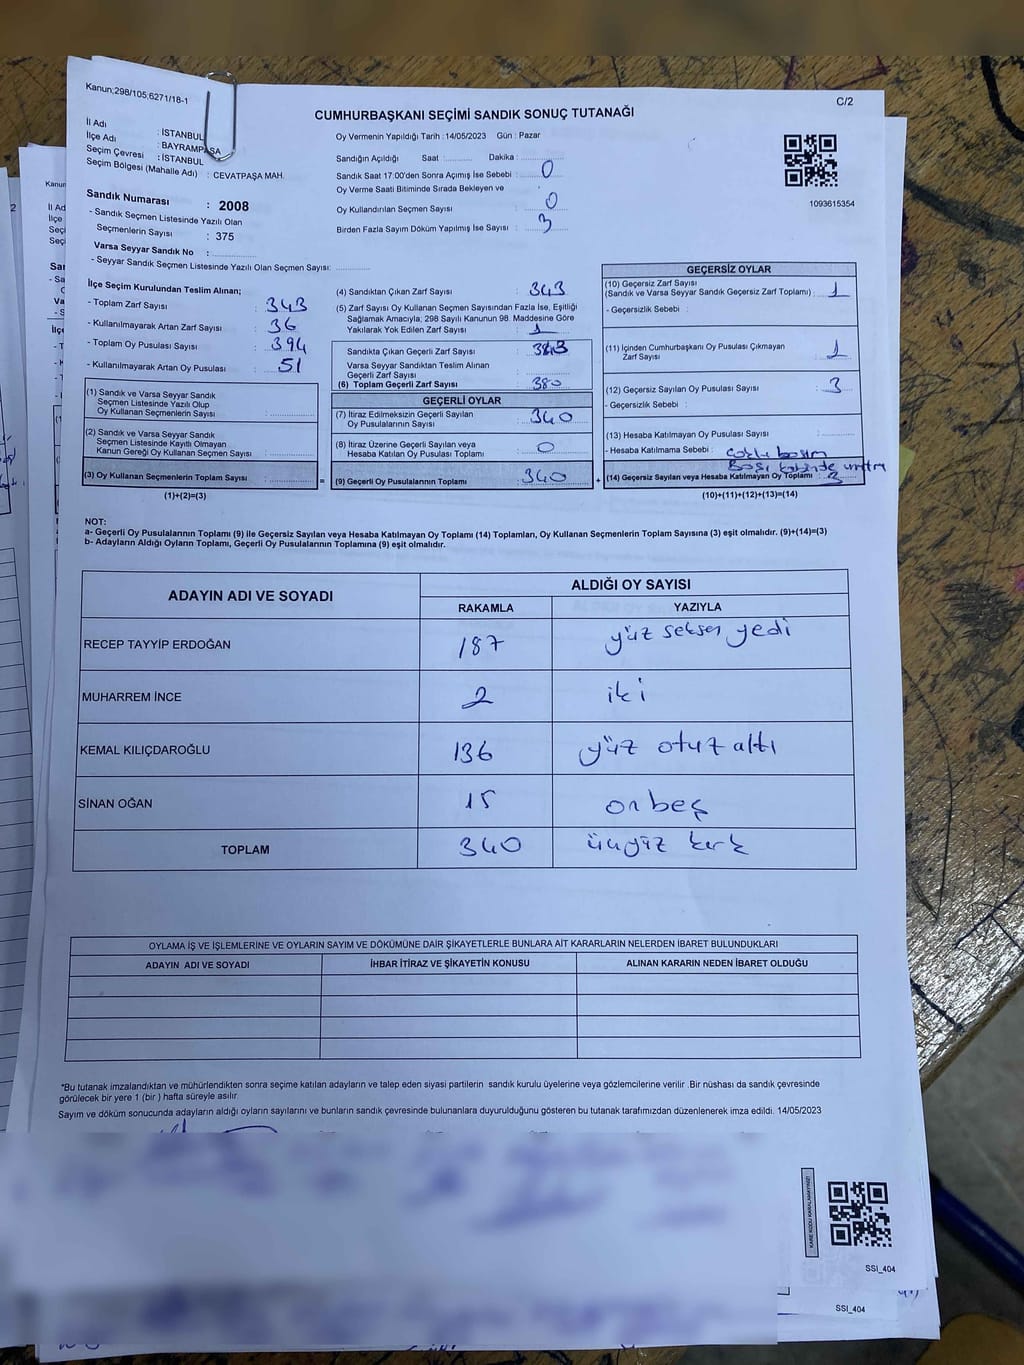 Kanun;298/105;6271/18-1
C/2
CUMHURBAŞKANI SEÇİMİ SANDIK SONUÇ TUTANAĞI
İl Adı : İSTANBUL
İlçe Adı : BAYRAMPAŞA
Seçim Çevresi : İSTANBUL
Seçim Bölgesi (Mahalle Adı) : CEVATPAŞA MAH.
Oy Vermenin Yapıldığı Tarih : 14/05/2023 Gün : Pazar
Sandığın Açıldığı Saat : Dakika :
Sandık Saat 17:00'den Sonra Açımış İse Sebebi : 0
Oy Verme Saati Bitiminde Sırada Bekleyen ve
Oy Kullandırılan Seçmen Sayısı : 0
Birden Fazla Sayım Döküm Yapılmış İse Sayısı : 3
1093615354
Sandık Numarası : 2008
- Sandık Seçmen Listesinde Yazılı Olan
Seçmenlerin Sayısı : 375
Varsa Seyyar Sandık No :
- Seyyar Sandık Seçmen Listesinde Yazılı Olan Seçmen Sayısı:
İlçe Seçim Kurulundan Teslim Alınan;
- Toplam Zarf Sayısı : 343
- Kullanılmayarak Artan Zarf Sayısı : 36
- Toplam Oy Pusulası Sayısı : 394
- Kullanılmayarak Artan Oy Pusulası : 51
(1) Sandık ve Varsa Seyyar Sandık
Seçmen Listesinde Yazılı Olup
Oy Kullanan Seçmenlerin Sayısı :
(2) Sandık ve Varsa Seyyar Sandık
Seçmen Listesinde Kayıtlı Olmayan
Kanun Gereği Oy Kullanan Seçmen Sayısı :
(3) Oy Kullanan Seçmenlerin Toplam Sayısı : =
(1)+(2)=(3)
(4) Sandıktan Çıkan Zarf Sayısı : 343
(5) Zarf Sayısı Oy Kullanan Seçmen Sayısından Fazla İse, Eşitliği
Sağlamak Amacıyla; 298 Sayılı Kanunun 98. Maddesine Göre
Yakılarak Yok Edilen Zarf Sayısı : 1
Sandıkta Çıkan Geçerli Zarf Sayısı :
Varsa Seyyar Sandıktan Teslim Alınan
Geçerli Zarf Sayısı :
(6) Toplam Geçerli Zarf Sayısı : 380
GEÇERLİ OYLAR
(7) İtiraz Edilmeksizin Geçerli Sayılan
Oy Pusulalarının Sayısı : 340
(8) İtiraz Üzerine Geçerli Sayılan veya
Hesaba Katılan Oy Pusulası Toplamı : 0
(9) Geçerli Oy Pusulalarının Toplamı : 340 +
GEÇERSİZ OYLAR
(10) Geçersiz Zarf Sayısı
(Sandık ve Varsa Seyyar Sandık Geçersiz Zarf Toplamı) : 1
- Geçersizlik Sebebi :
(11) İçinden Cumhurbaşkanı Oy Pusulası Çıkmayan
Zarf Sayısı : 1
(12) Geçersiz Sayılan Oy Pusulası Sayısı : 3
- Geçersizlik Sebebi :
(13) Hesaba Katılmayan Oy Pusulası Sayısı :
- Hesaba Katılmama Sebebi :
(14) Geçersiz Sayılan veya Hesaba Katılmayan Oy Toplamı : 3
(10)+(11)+(12)+(13)=(14)
NOT:
a- Geçerli Oy Pusulalarının Toplamı (9) ile Geçersiz Sayılan veya Hesaba Katılmayan Oy Toplamı (14) Toplamları, Oy Kullanan Seçmenlerin Toplam Sayısına (3) eşit olmalıdır. (9)+(14)=(3)
b- Adayların Aldığı Oyların Toplamı, Geçerli Oy Pusulalarının Toplamına (9) eşit olmalıdır.
ADAYIN ADI VE SOYADI
ALDIĞI OY SAYISI
RAKAMLA YAZIYLA
RECEP TAYYİP ERDOĞAN 187 yüz seksen yedi
MUHARREM İNCE 2 iki
KEMAL KILIÇDAROĞLU 136 yüz otuz altı
SİNAN OĞAN 15 on beş
TOPLAM 340 üçyüz kırk
OYLAMA İŞ VE İŞLEMLERİNE VE OYLARIN SAYIM VE DÖKÜMÜNE DAİR ŞİKAYETLERLE BUNLARA AİT KARARLARIN NELERDEN İBARET BULUNDUKLARI
ADAYIN ADI VE SOYADI İHBAR İTİRAZ VE ŞİKAYETİN KONUSU ALINAN KARARIN NEDEN İBARET OLDUĞU
*Bu tutanak imzalandıktan ve mühürlendikten sonra seçime katılan adayların ve talep eden siyasi partilerin sandık kurulu üyelerine veya gözlemcilerine verilir .Bir nüshası da sandık çevresinde
görülecek bir yere 1 (bir ) hafta süreyle asılır.
Sayım ve döküm sonucunda adayların aldığı oyların sayılarını ve bunların sandık çevresinde bulunanlara duyurulduğunu gösteren bu tutanak tarafımızdan düzenlenerek imza edildi. 14/05/2023
SSI_404
SSI_404